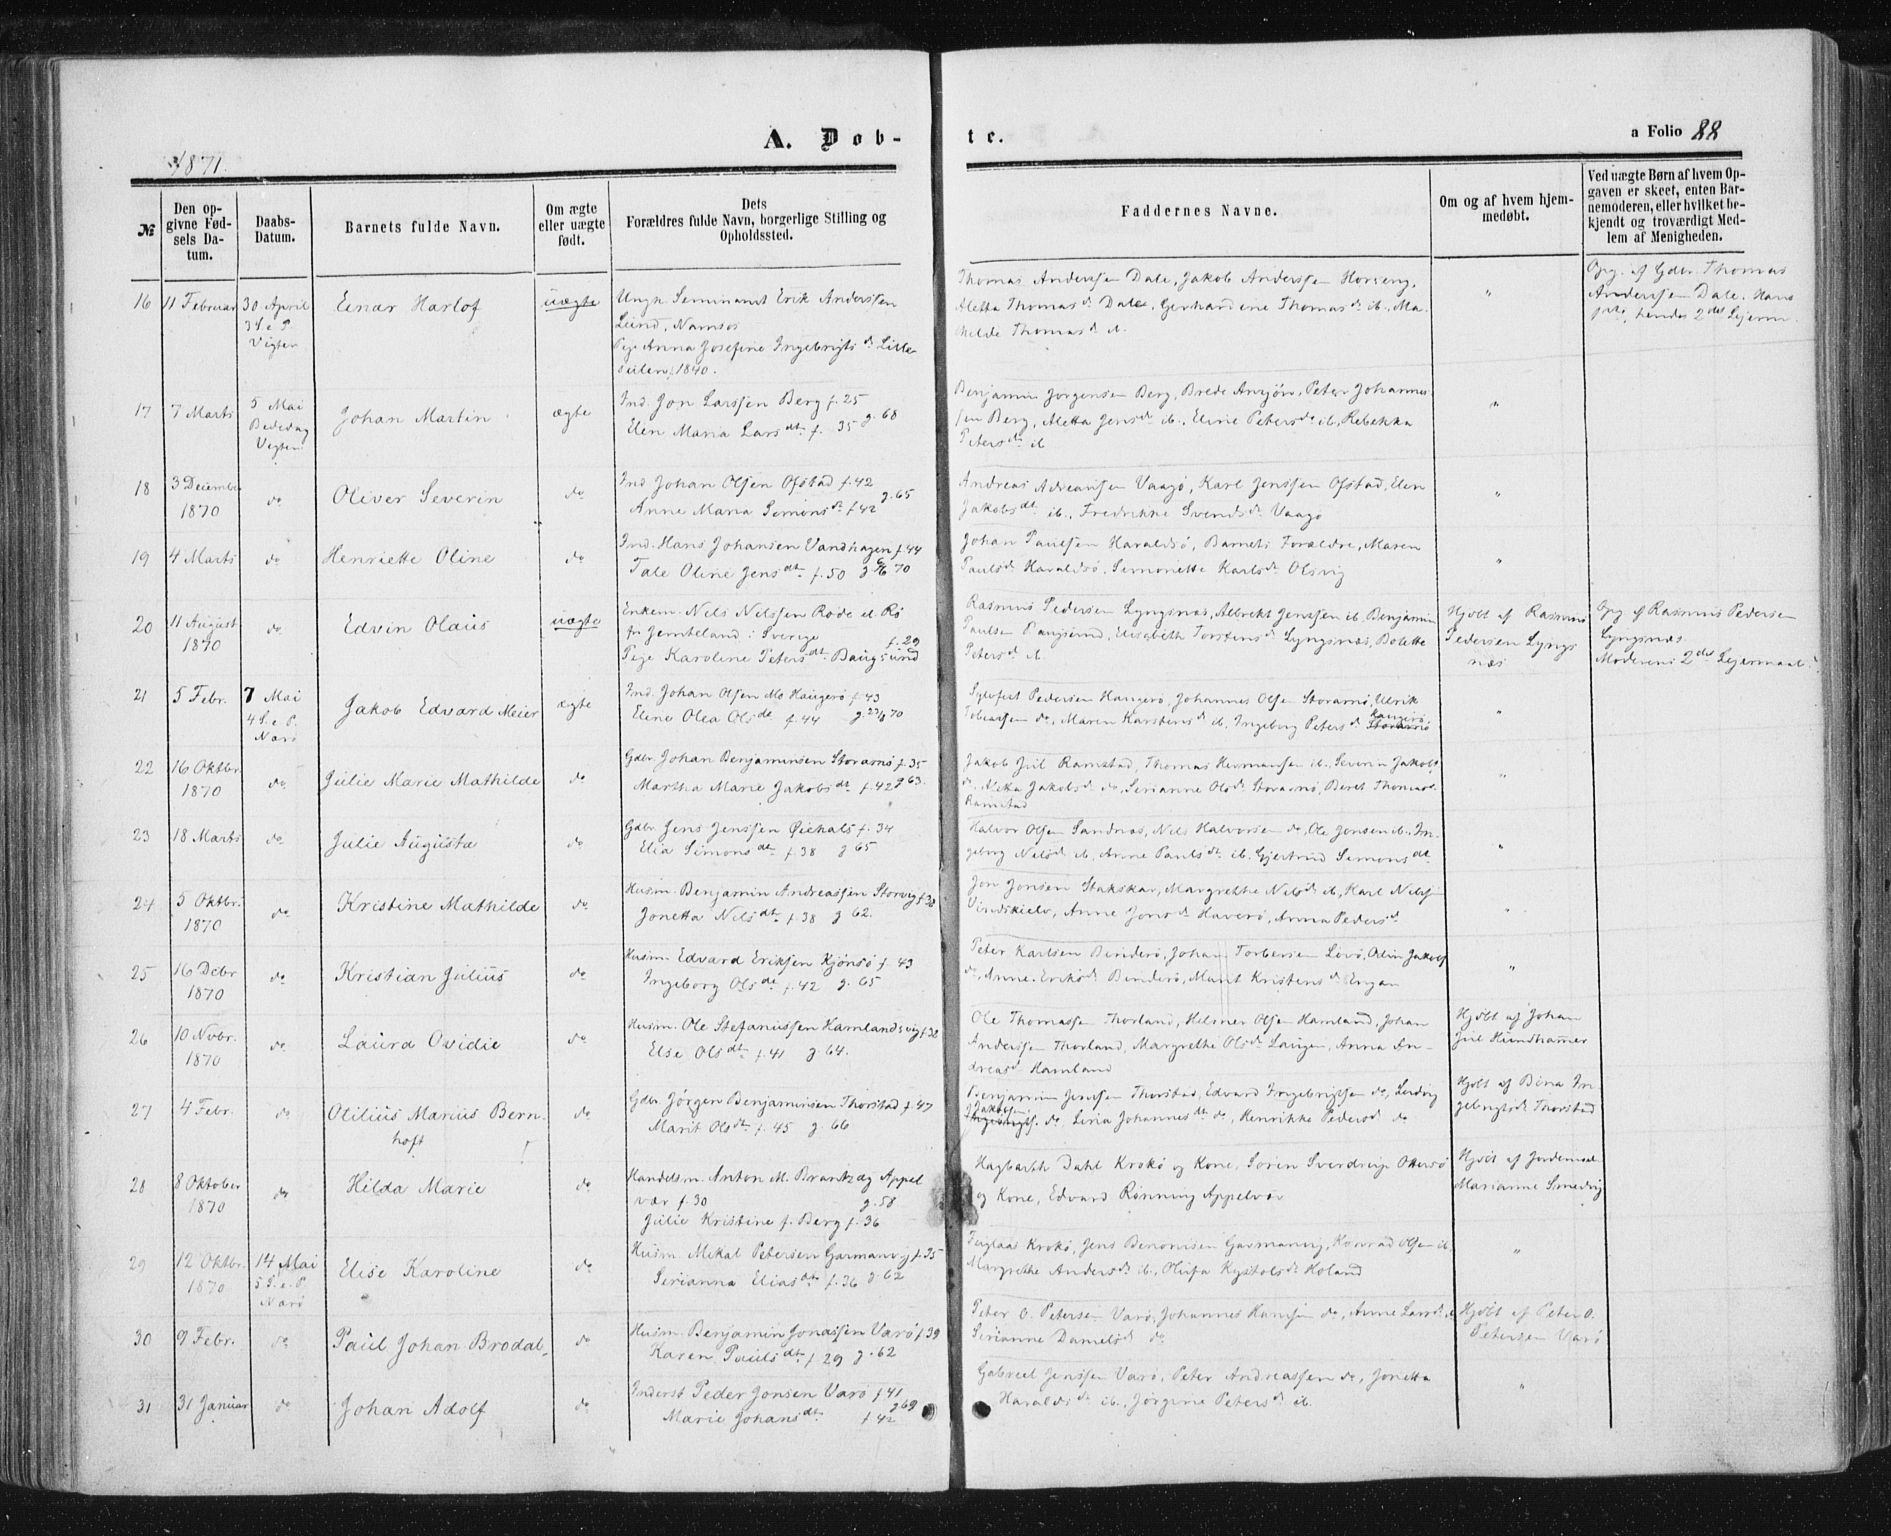 A. Dob-
te.
a Folio 88
1871.
№
Den opgivne Fødsels Datum.
Daabs-Datum.
Barnets fulde Navn.
Om ægte eller uægte født.
Dets Forældres fulde Navn, borgerlige Stilling og Opholdssted.
Faddernes Navne.
Om og af hvem hjemmedøbt.
Ved uægte Børn af hvem Opgaven er skeet, enten Barnemoderen, eller hvilket bekjendt og troværdigt Medlem af Menigheden.
16 11 Februar 30 April Einar Harlof uægte Ungk. Seminarist Erik Anderssen
3 S. e. P. Lund, Namsos
Vigten Pige Anna Josefine Ingebrigts dt Lille-
f. 1840.
Thomas Anderssen Dale, Jakob Anderssen Horseng,
Aletta Thomas dt Dale, Gerhardine Thomas dt ib., Ma-
thilde Thomas d. ib.
"
Opg. af Gdbr. Thomas
Anderssen Dale. Hans
hendes 2det Lejerm.
17 7 Marts 5 Mai Johan Martin ægte Ind. Jon Larssen Berg f. 25
Bededag Elen Maria Lars dt f. 35 g. 68
Vigten
Benjamin Jørgensen Berg, Brede Peter Johannes-
sen Berg, Aletta Jens dt ib., Eline Peters dt ib, Rebekka
Peters dt ib
"
18 3 Decemb. do Oliver Severin do Ind Johan Olsen Ofstad f. 42
1870 Anne Maria Simons dt f 42 g. 65
Andreas Adreassen Vaagø, Karl Jenssen Ofstad, Elen
Jakobs dt ib., Fredrikke Svends dt Vaagø
"
19 4 Marts do Henriette Oline do Ind. Hans Johansen Vandhagen f. 44
Tale Oline Jens dt f. 50 g. 70
Johan Paulsen Haraldsø, Barnets Forældre, Maren
Pauls d Haraldsø, Simonette Karls dt Olsvig
"
20 11 August do Edvin Olaus uægte Enkem. Nils Nilssen Røde el. Rø
1870 fr. Jemteland i Sverige
Pige Karoline Peters dt Baugsund f. 29
Rasmus Pedersen Lyngsnæs, Albrekt Jenssen ib, Benjamin
Paulsen Elisabeth Torstens dt Lyngsnæs, Bolette
Peters d. ib
Hjdbt af Rasmus
Pedersen Lyngs
næs
Opg. af Rasmus Pedersen
Lyngsnæs.
Moderens 2det Lejermaal.
21 5 Febr. 7 Mai Jakob Edvard Meier ægte Ind. Johan Olsen Mo Haugerø f. 43
4 S. e P. Eline Olea Ols dt f. 44 g. 70
Nærø
Sylvfest Pedersen Haugerø, Johannes Olsen Storarnø, Ulrik
Tobiassen do, Maren Karstens dt ib, Ingeborg Peters dt Haugerø
"
22 16 Oktbr. do Julie Marie Mathilde do Gdbr. Johan Benjaminsen Storarnø f. 35
1870 Martha Marie Jakobs dt f. 42 g 63.
Jakob Jul Ramstad, Thomas Hermansen ib., Severin Jakobs.
do, Aletta Jakobs dt do, Serianne Ols dt Storarnø, Beret Thomas d.
Ramstad
"
23 18 Marts do Julie Augusta do Gdbr. Jens Jenssen Øiehals f. 34
Elia Simons dt f. 38 g 65
Halvor Olsen Sandnæs, Nils Halvorsen do, Ole Jonsen ib., In-
geborg Nils d ib, Anne Pauls dt ib. Gjertrud Simons dt
"
24 5 Oktbr. do Kristine Mathilde do Husm. Benjamin Andreassen Storvig f. 38
1870 Jonetta Nils dt f 38 g 62.
Jon Jonsen Stakskar, Margrethe Nils dt ib, Karl Nils.
Vendskiels, Anne Jons dt Haverø, Anna Peders d
"
25 16 Debr do Kristian Julius do Husm. Edvard Eriksen Kjønsø f. 43
1870 Ingeborg Ols dt f. 42 g. 65
Peter Karlsen Binderø, Johan Torbersen Lovø, Olin Jakobs
do, Anne Eriks dt Binderø, Marit Kristens dt Engan
"
26 10 Novbr. do Laura Ovidie do Husm. Ole Stefanussen Hamlandsvig f. 38
1870 Else Ols dt f. 41 g. 64.
Ole Thomassen Thorland, Hilmer Olsen Hamland, Johan
Anderssen Thorland, Margrethe Ols dt Laugen, Anna An-
dreas d. Hamland
Hjdbt af Johan
Juel Hundhammer
27 4 Febr. do Otilius Marius Bern- do Gdbr. Jørgen Benjaminsen Thorstad f. 47
hoft Marit Ols dt f. 45 g 66
Benjamin Jenssen Thorstad, Edvard Ingebrigtsen do, Ludvig
Jakobsen do, Liria Johannes dt do, Henrikke Peders d do
Hjdbt af Bina In-
gebrigts d Thorstad
28 8 Oktober do Hilda Marie do Handelsm. Anton M. Brantzæg Appel
1870 vær f. 30 g. 58
Julie Kristine f. Berg f. 36
Hagbarth Dahl Krokø og Kone, Søren Sverdrup Ottersø
og Kone, Edvard Rønning Appelvær
Hjdbt af Jordemod.
Marianne Smedvig
29 12 Oktbr. 14 Mai Elise Karoline do Husm. Mikal Petersen Garmanvig f. 35
1870 5 S. e. P. Serianna Elias dt f. 36 g. 62
Nærø
Krokø, Jens Benonisen Garmanvig, Konrad Olsen ib.
Margrethe Anders dt ib., Olufa Kystols dt Holand
"
30 9 Febr. do Paul Johan Brodal. do Husm. Benjamin Jonassen Værø f 39
Karen Pauls dt f 29 g. 62
Peter O. Petersen Varø, Johannes Hansen do, Anne Lars d. do
Serianne Daniels d do
Hjdbt af Peter O.
Petersen Varø
31 31 Januar do Johan Adolf do Inderst Peder Jonsen Varø f 41
Marie Johans dt f 42 g 69
Gabriel Jenssen Varø, Peter Andreassen do, Jonetta
Haralds dt ib., Jørgine Peters d. ib.
"